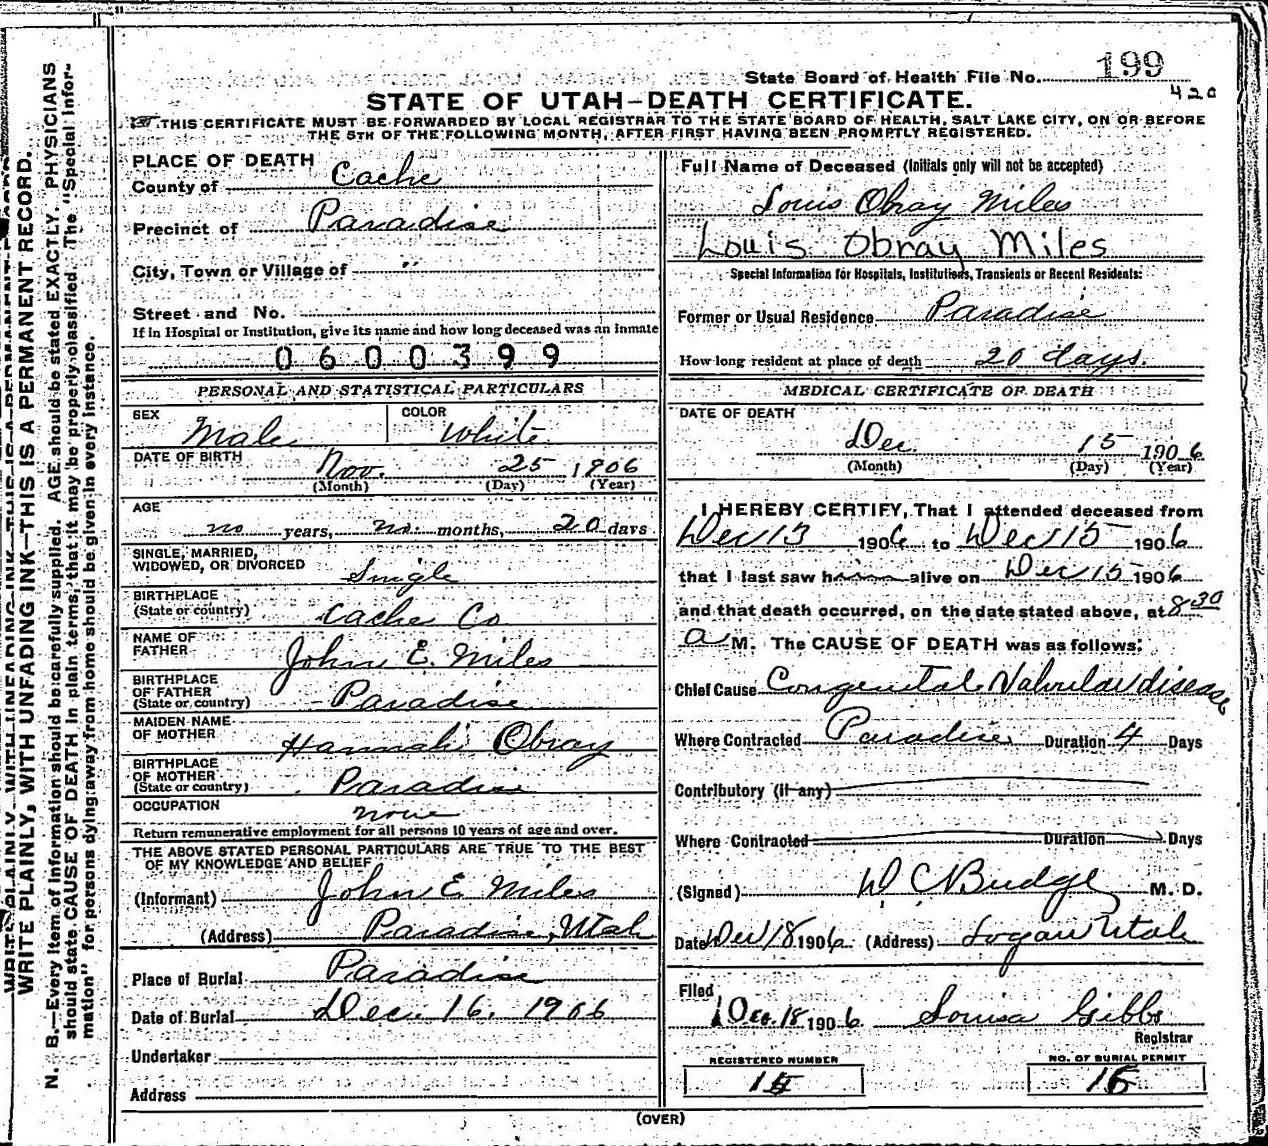 State Board of Health File No. 199
420
STATE OF UTAH—DEATH CERTIFICATE.
THIS CERTIFICATE MUST BE FORWARDED BY LOCAL REGISTRAR TO THE STATE BOARD OF HEALTH, SALT LAKE CITY, ON OR BEFORE
THE 5TH OF THE FOLLOWING MONTH, AFTER FIRST HAVING BEEN PROMPTLY REGISTERED.
WRITE PLAINLY, WITH UNFADING INK—THIS IS A PERMANENT RECORD.
N. B.—Every item of information should be carefully supplied. AGE should be stated EXACTLY. PHYSICIANS
should state CAUSE OF DEATH in plain terms, that it may be properly classified. The "Special Infor-
mation" for persons dying away from home should be given in every instance.
PLACE OF DEATH
County of Cache
Precinct of Paradise
City, Town or Village of "
Street and No.
If in Hospital or Institution, give its name and how long deceased was an inmate
0600399
PERSONAL AND STATISTICAL PARTICULARS
SEX Male COLOR White
DATE OF BIRTH Nov. 25 1906
(Month) (Day) (Year)
AGE
no years, no months, 20 days
SINGLE, MARRIED,
WIDOWED, OR DIVORCED Single
BIRTHPLACE
(State or country) Cache Co
NAME OF
FATHER John E. Miles
BIRTHPLACE
OF FATHER
(State or country) Paradise
MAIDEN NAME
OF MOTHER Hannah Obray
BIRTHPLACE
OF MOTHER
(State or country) Paradise
OCCUPATION none
Return remunerative employment for all persons 10 years of age and over.
THE ABOVE STATED PERSONAL PARTICULARS ARE TRUE TO THE BEST
OF MY KNOWLEDGE AND BELIEF
(Informant) John E Miles
(Address) Paradise, Utah
Place of Burial Paradise
Date of Burial Dec. 16, 1906
Undertaker
Address
Full Name of Deceased (Initials only will not be accepted)
Louis Obray Miles
Louis Obray Miles
Special Information for Hospitals, Institutions, Transients or Recent Residents:
Former or Usual Residence Paradise
How long resident at place of death 20 days.
MEDICAL CERTIFICATE OF DEATH
DATE OF DEATH
Dec. 15 1906
(Month) (Day) (Year)
I HEREBY CERTIFY, That I attended deceased from
Dec 13 1906 to Dec 15 1906
that I last saw him alive on Dec 15 1906
and that death occurred, on the date stated above, at 8 30
a M. The CAUSE OF DEATH was as follows:
Chief Cause Congenital Valvular disease
Where Contracted Paradise Duration 4 Days
Contributory (if any)
Where Contracted Duration Days
(Signed) W C Budge M. D.
Date Dec 18 1906 (Address) Logan Utah
Filed
Dec. 18 1906 Louisa Gibbs
Registrar
REGISTERED NUMBER
NO. OF BURIAL PERMIT
(OVER)